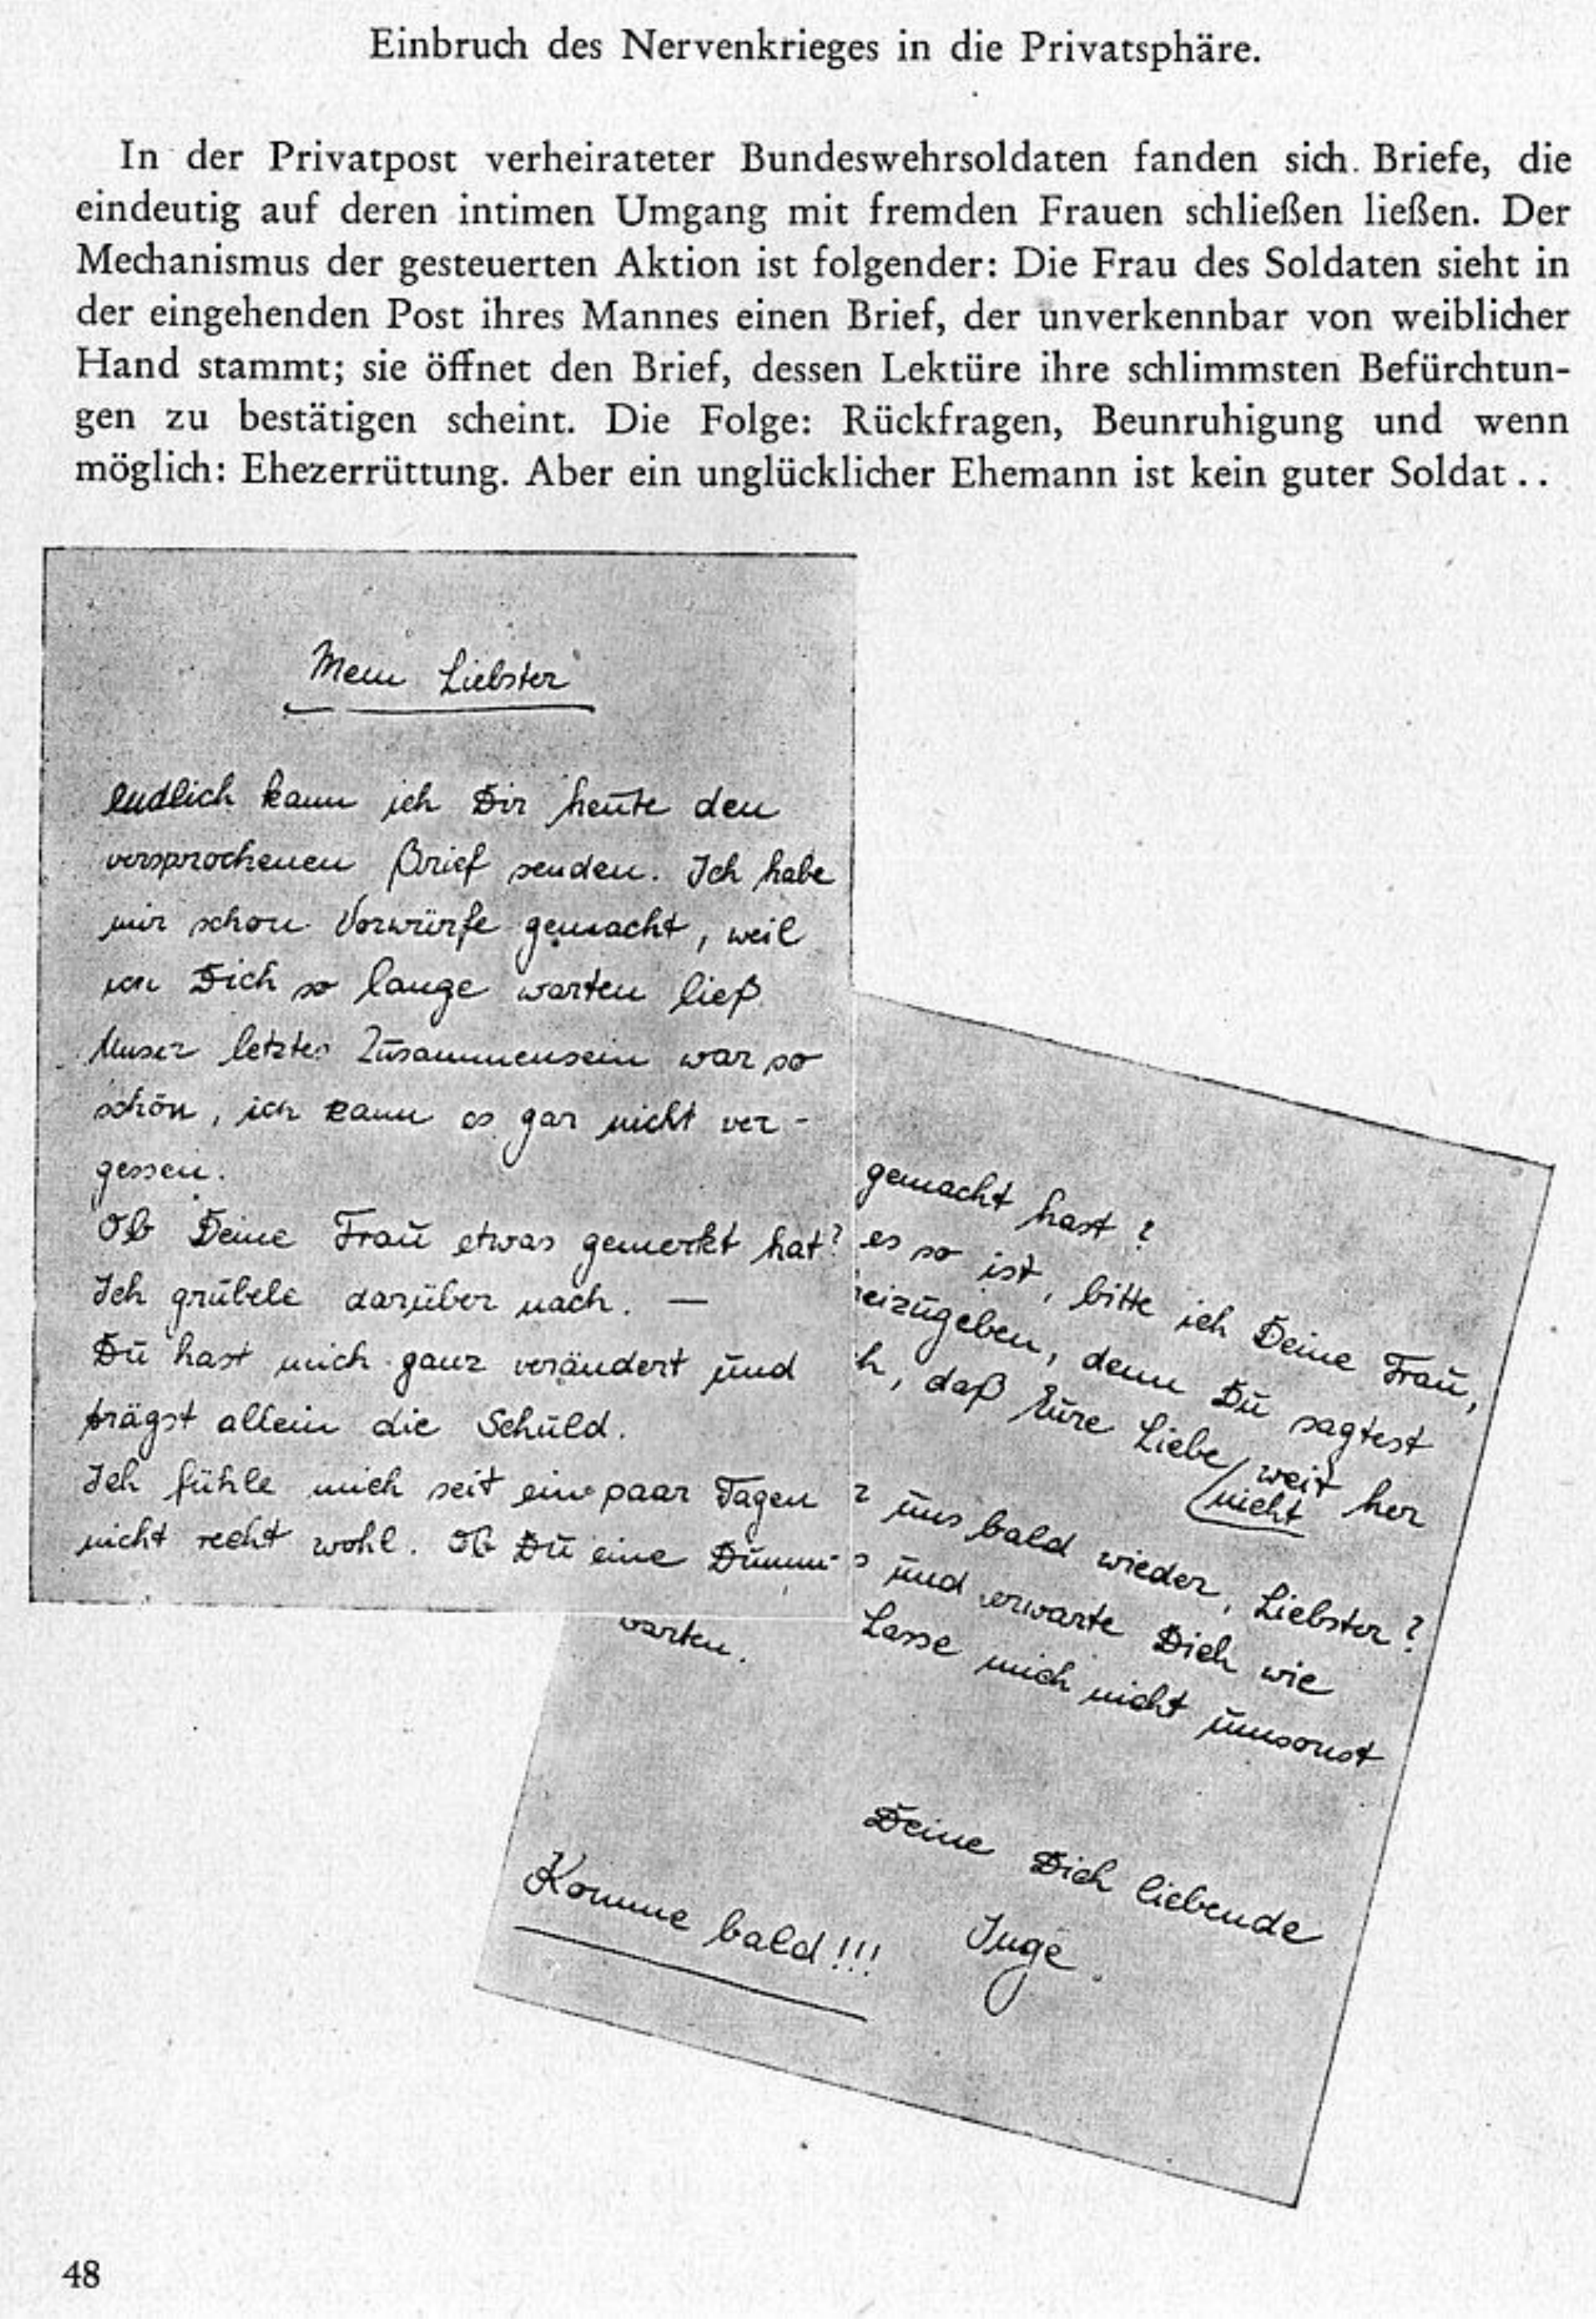 Einbruch des Nervenkrieges in die Privatsphäre.
In der Privatpost verheirateter Bundeswehrsoldaten fanden sich Briefe, die
eindeutig auf deren intimen Umgang mit fremden Frauen schließen ließen. Der
Mechanismus der gesteuerten Aktion ist folgender: Die Frau des Soldaten sieht in
der eingehenden Post ihres Mannes einen Brief, der unverkennbar von weiblicher
Hand stammt; sie öffnet den Brief, dessen Lektüre ihre schlimmsten Befürchtun-
gen zu bestätigen scheint. Die Folge: Rückfragen, Beunruhigung und wenn
möglich: Ehezerrüttung. Aber ein unglücklicher Ehemann ist kein guter Soldat ..
Mein Liebster
endlich kann ich Dir heute den
versprochenen Brief senden. Ich habe
mir schon Vorwürfe gemacht, weil
ich Dich so lange warten ließ
Unser letztes Zusammensein war so
schön, ich kann es gar nicht ver-
gessen.
Ob Deine Frau etwas gemerkt hat?
Ich grübele darüber nach. —
Du hast mich ganz verändert und
trägst allein die Schuld.
Ich fühle mich seit ein paar Tagen
nicht recht wohl. Ob Du eine Dumm-
gemacht hast?
es so ist, bitte ich Deine Frau,
eizugeben, denn Du sagtest
h, daß Eure Liebe weit her
nicht
r uns bald wieder, Liebster?
s und erwarte Dich wie
Lasse mich nicht umsonst
warten.
Deine Dich liebende
Inge.
Komme bald!!!
48